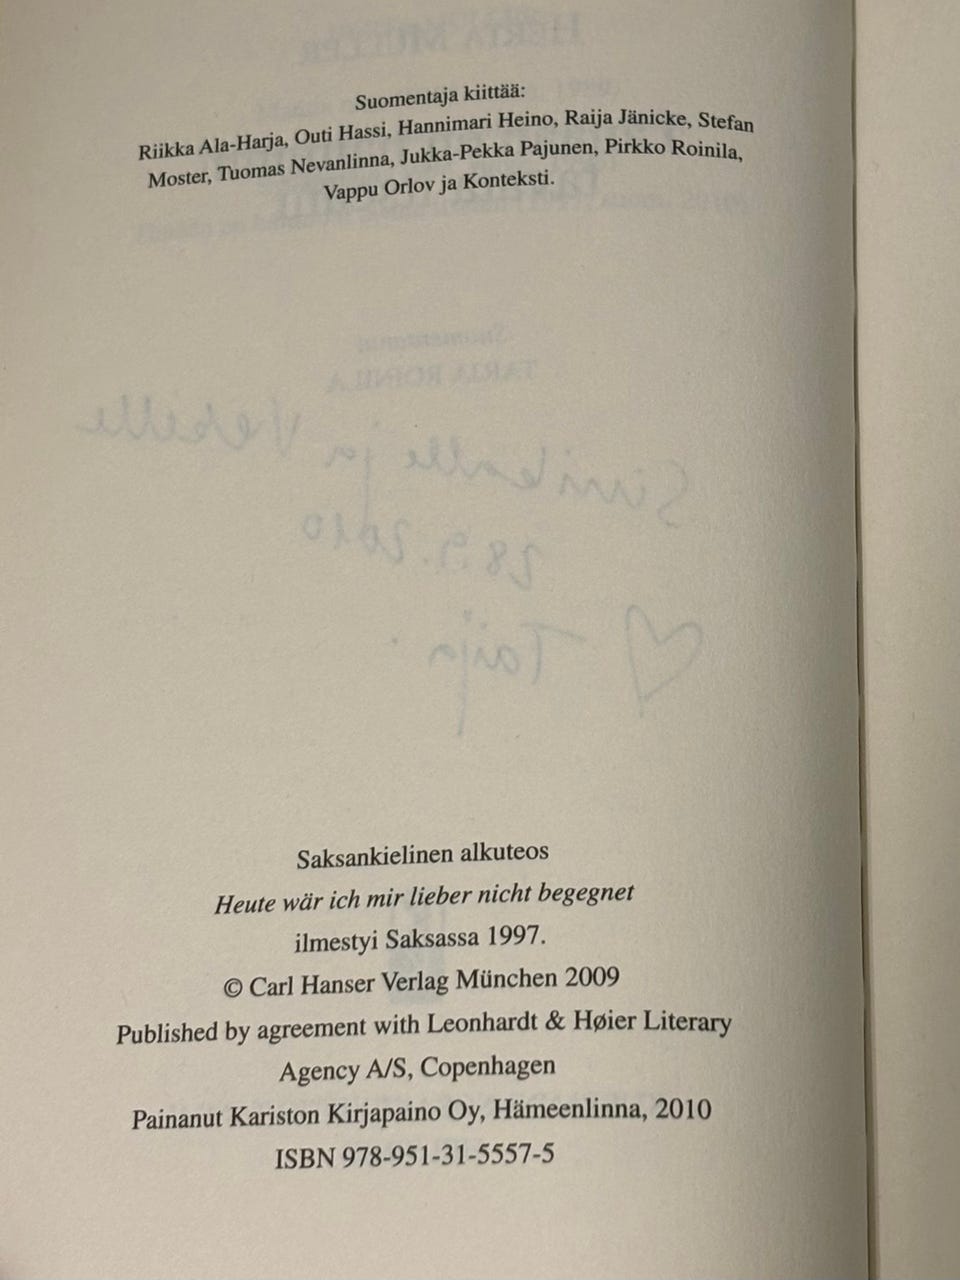 Suomentaja kiittää:
Riikka Ala-Harja, Outi Hassi, Hannimari Heino, Raija Jänicke, Stefan
Moster, Tuomas Nevanlinna, Jukka-Pekka Pajunen, Pirkko Roinila,
Vappu Orlov ja Konteksti.
HERTA MÜLLER
Suomentanut
TARJA ROINILA
ja
28.9.2010
Saksankielinen alkuteos
Heute wär ich mir lieber nicht begegnet
ilmestyi Saksassa 1997.
© Carl Hanser Verlag München 2009
Published by agreement with Leonhardt & Høier Literary
Agency A/S, Copenhagen
Painanut Kariston Kirjapaino Oy, Hämeenlinna, 2010
ISBN 978-951-31-5557-5